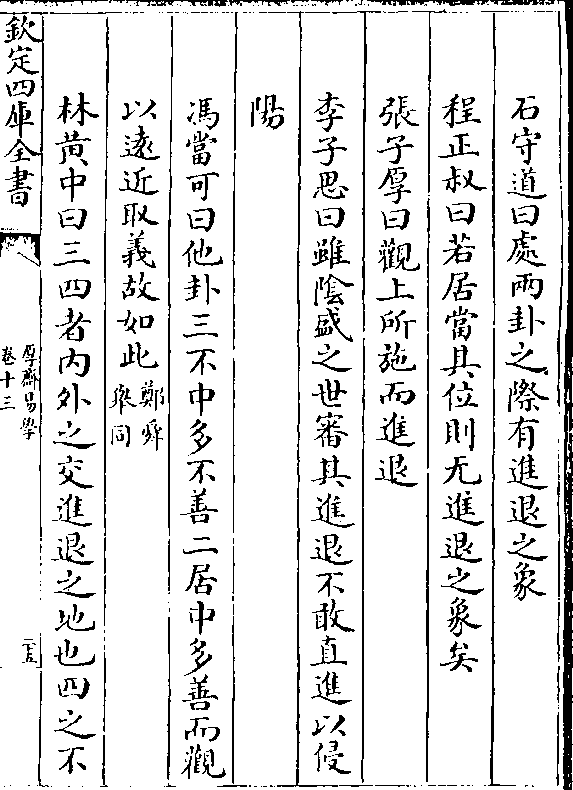 石守道曰處兩卦之際有進退之象
程正叔曰若居當其位則无進退之象矣
張子厚曰觀上所施而進退
李子思曰雖陰盛之世審其進退不敢直進以侵
陽
馮當可曰他卦三不中多不善二居中多善而觀
以遠近取義故如此鄭舜
衆同
林黄中曰三四者内外之交進退之地也四之不
欽定四庫全書
厚齋易學
卷十三
二十五